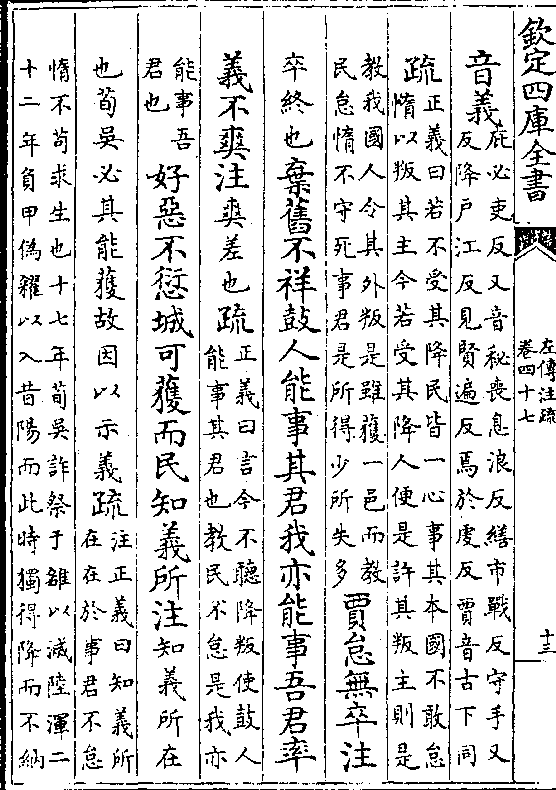 欽定四庫全書
左傳注疏
卷四十七
十三
音義
庇必吏反又音秘喪息浪反繕市戰反守手又
反降戶江反見賢遍反焉於虔反賈音古下同
疏
正義曰若不受其降民皆一心事其本國不敢怠
惰以叛其主今若受其降人便是許其叛主則是
教我國人令其外叛是雖獲一邑而教
民怠惰不守死事君是所得少所失多
賈怠無卒注
卒終也棄舊不祥鼓人能事其君我亦能事吾君率
義不爽注爽差也疏
正義曰言今不聽降叛使鼓人
能事其君也教民不怠是我亦
能事吾
君也
好惡不愆城可獲而民知義所注知義所在
也荀吳必其能獲故因以示義疏
注正義曰知義所
在在於事君不怠
惰不苟求生也十七年荀吳詐祭于雒以滅陸渾二
十二年負甲偽糴以入昔陽而此時獨得降而不納